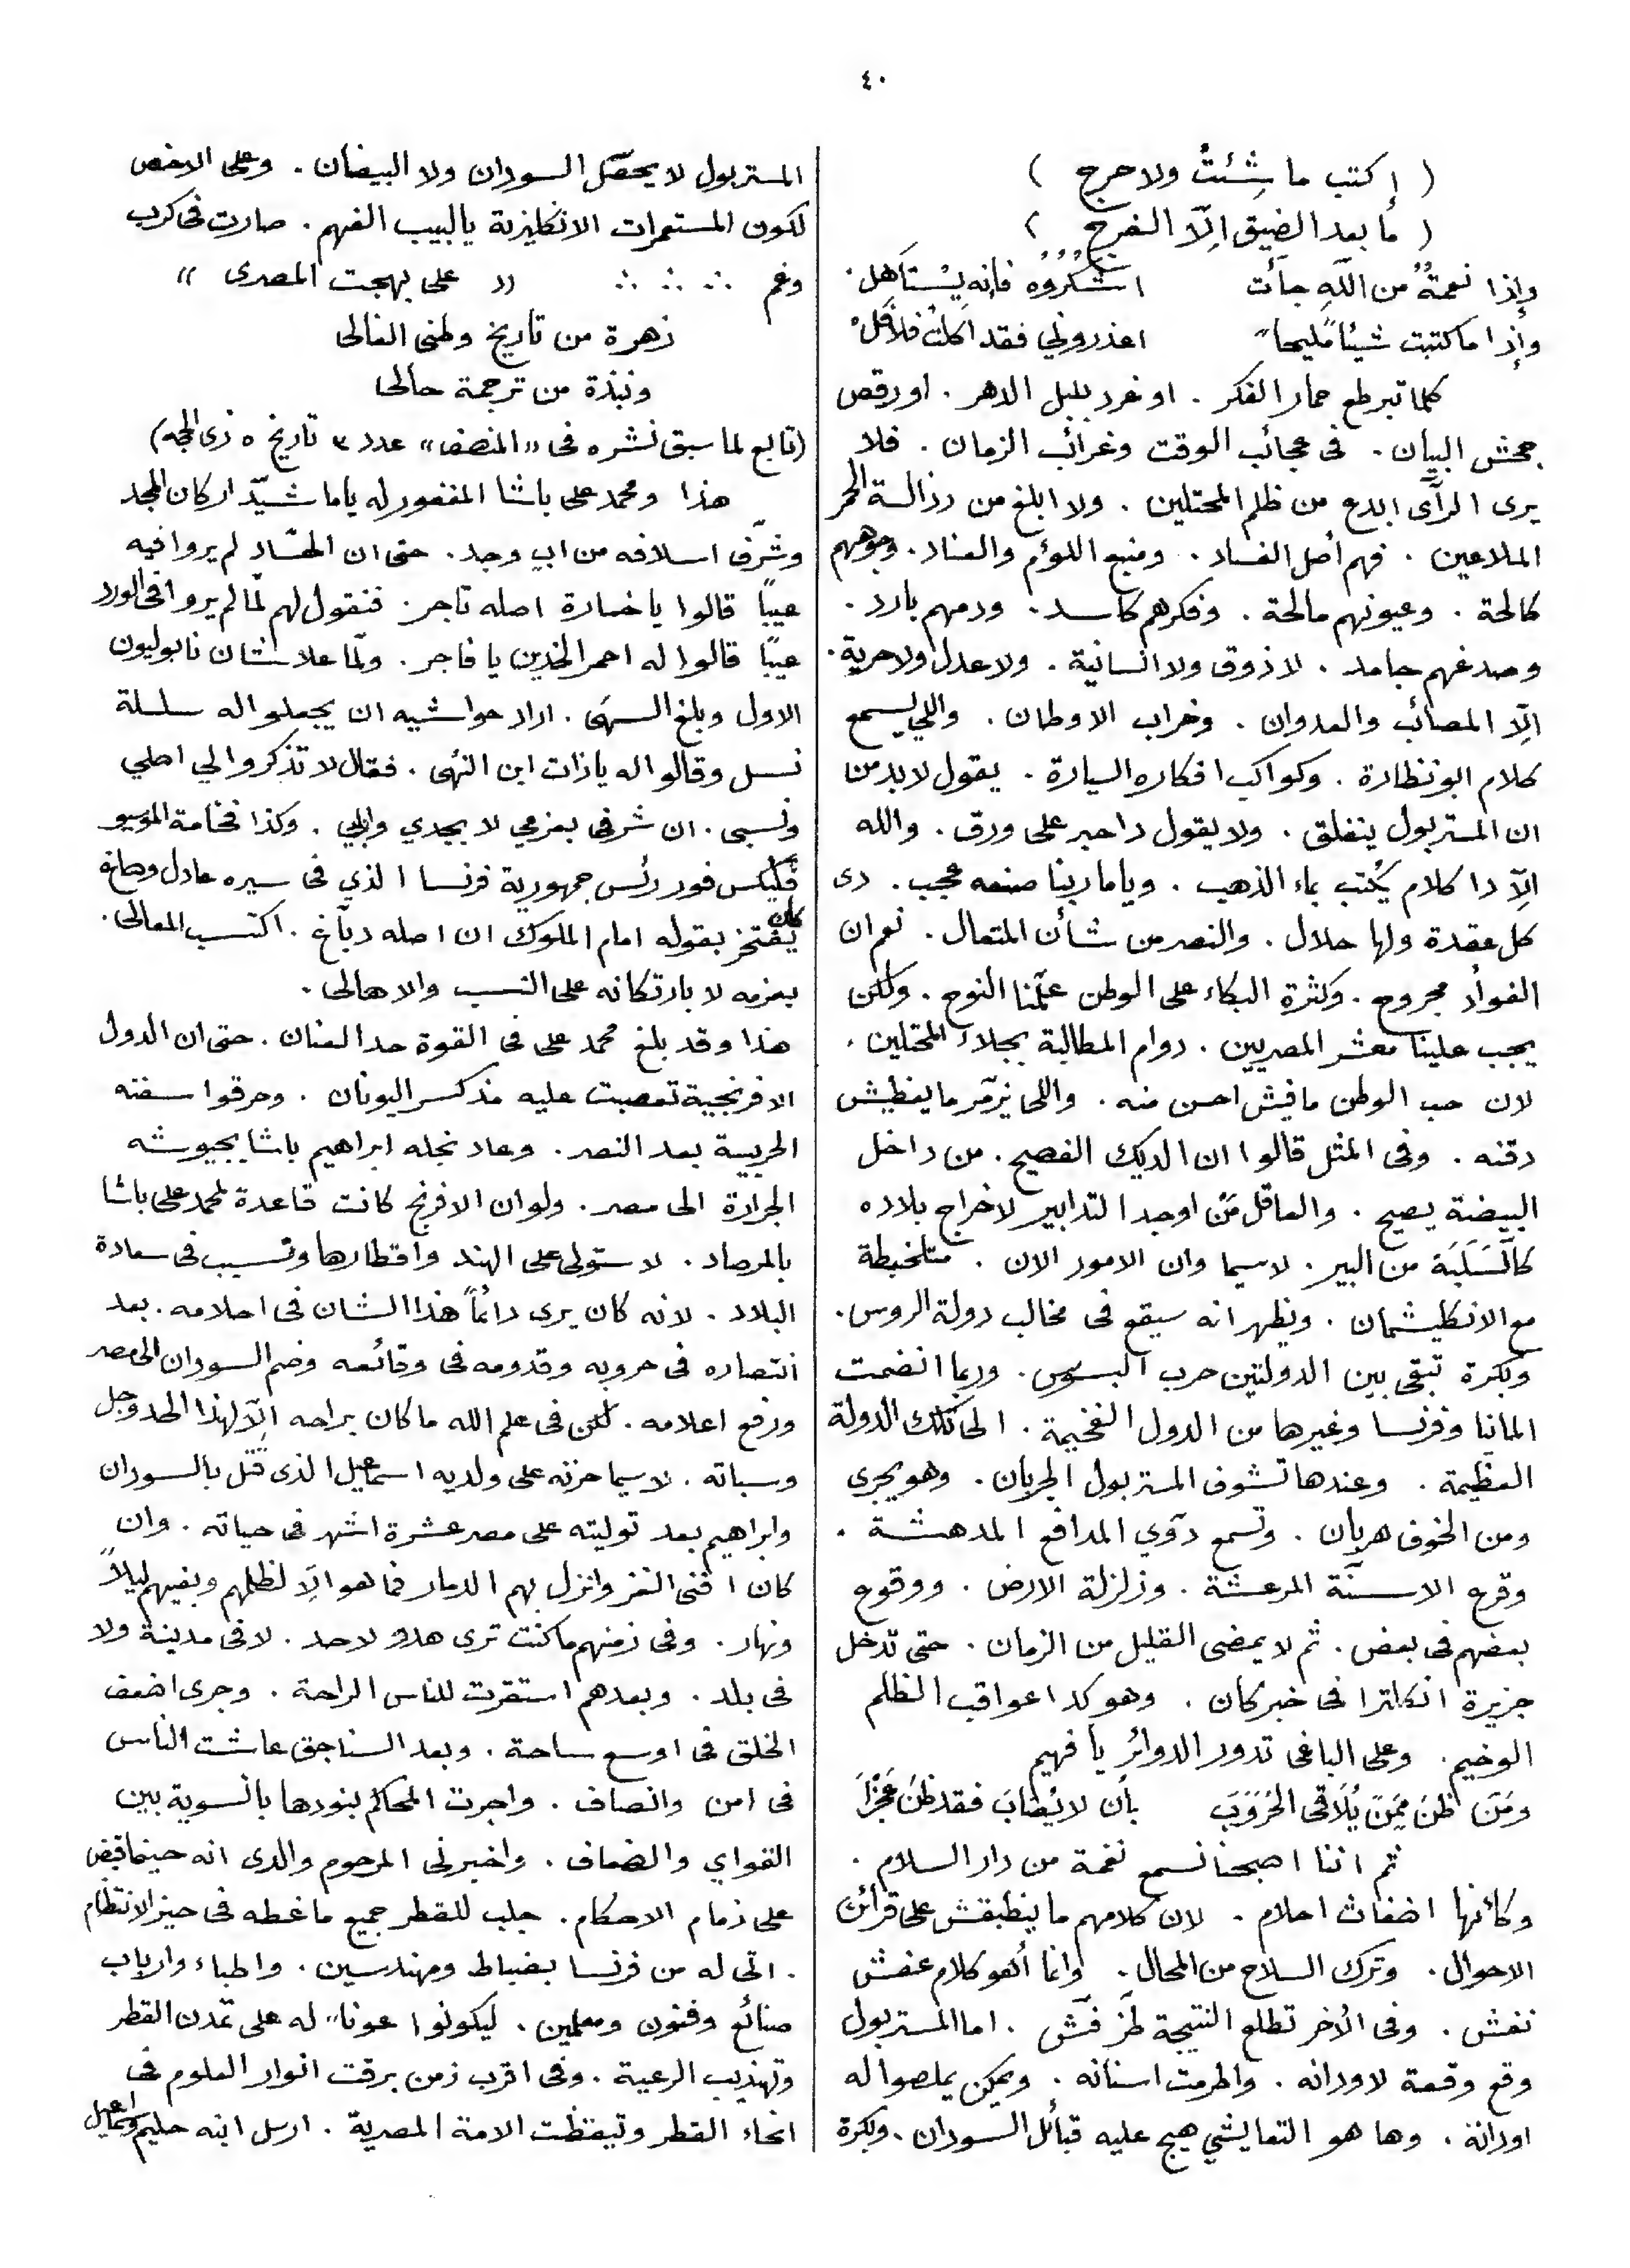 ٤٠
( إكتب ما شِئتَ ولا حرج )
( ما بعد الضيق إلّا الفرج )
وإذا نعمةٌ من اللّه جاءت اشكروه فإنه يستاهل.
وإذا ما كتبت شيئاً مليحاً اعذروني فقد اكلت فلافل
كلما تبرطع حمار الفكر . او غرد بلبل الدهر . او رقص
جحش البيان . فى عجائب الوقت وغرائب الزمان . فلا
يرى الرآى ابدع من ظلم المحتلين . ولا ابلغ من رذالة الحمر
الملاعين . فهم أصل الفساد . ومنبع اللؤم والعناد . وجوههم
كالحة . وعيونهم مالحة . وفكرهم كاسد . ودمهم بارد .
وصدغهم جامد . لا ذوق ولا انسانية . ولا عدل ولا حرية .
الّا المصائب والعدوان . وخراب الاوطان . واللي يسمع
كلام ابو نظارة . وكواكب افكاره السيارة . يقول لا بد من
ان المستربول ينفلق . ولا يقول دا حبر على ورق . والله
الّا دا كلام يُكتب بماء الذهب . وياما ربنا صنعه عجب . دى
كل عقدة ولها حلال . والنصر من شأن المتعال . نعم ان
الفوأد مجروح . وكثرة البكاء على الوطن علّمنا النوح . ولكن
يجب علينا معشر المصريين . دوام المطالبة بجلاء المحتلين .
لان حب الوطن مافيش احسن منه . واللى يزمّر ما يغطيش
دقنه . وفى المثل قالوا ان الديك الفصيح . من داخل
البيضة يصيح . والعاقل مَن اوجد التدابير لاخراج بلاده
كالسَلَبَة من البير . لاسيما وان الامور الان . متلخبطة
مع الانكليشمان . ونظهر انه سيقع فى مخالب دولة الروس .
وبكرة تبقى بين الدولتين حرب البسوس . وربما انضمت
المانيا وفرنسا وغيرها من الدول الفخيمة . الى تلك الدولة
العظيمة . وعندها تشوف المستربول الجربان . وهو يجرى
ومن الخوف هربان . وتسمع دوّي المدافع المدهشة .
وقرع الاسنّة المرعشة . وزلزلة الارض . ووقوع
بعضهم فى بعض . ثم لا يمضى القليل من الزمان . حتى تدخل
جزيرة انكلترا فى خبر كان . وهو كدا عواقب الظلم
الوخيم . وعلى الباغى تدور الدوائر يا فهيم
ومَن ظن مِمن يُلاقى الحُرُوبَ بأن لا يُصَابَ فقد ظن عَجْزَا
ثم اننا اصبحنا نسمع نغمة من دار السلام .
وكأنها اضغاث احلام . لان كلامهم ما ينطبقش على قرائن
الاحوال . وترك السلاح من المحال . وانما أهو كلام عفش
نفش . وفى الأخر تطلع النتيجة طز فش . اما المستربول
وقع وقعة لاودانه . واطرمت اسنانه . ويمكن يملصوا له
اودانة . وها هو التعايشي هيج عليه قبائل السودان . وبكرة
المستربول لا يحصّل السودان ولا البيضان . وعلى الاخص
لكون المستعمرات الانكليزية يا لبيب الفهم . صارت فى كرب
وغم ∴ ∴ ∴ « على بهجت المصرى »
زهرة من تاريخ وطنى الغالى
ونبذة من ترجمة حالى
(تابع لما سبق نشره فى «المنصف» عدد ٣ تاريخ ٥ ذى الحجه)
هذا ومحمد على باشا المغفور له ياما شيّد اركان المجد
وشرّف اسلافه من اب وجد . حتى ان الحسّاد لم يروا فيه
عيباً قالوا يا خسارة اصله تاجر . فنقول لهم لمّا لم يروا فى الورد
عيبًا قالوا له احمر الخدين يا فاجر . ولمّا علا شان نابوليون
الاول وبلغ السهى . اراد حواشيه ان يجعلوا له سلسلة
نسل وقالوا له يا ذات ابن النهى . فقال لا تذكروا لي اصلي
ونسبى . ان شرفى بعزمي لا بجدي وابي . وكذا فخامة الموسيو
فليكس فور رئس جمهورية فرنسا الذي فى سيره عادل وصاغ
كان يفتخر بقوله امام الملوك ان اصله دبّاغ . اكتسب المعالى .
بعزمه لا بارتكانه على النسب والاهالى .
هذا وقد بلغ محمد على فى القوة حد العنان . حتى ان الدول
الافرنجية تعصبت عليه مذ كسر اليونان . وحرقوا سفنه
الحربية بعد النصر . وعاد نجله ابراهيم باشا بجيوشه
الجرارة الى مصر . ولو ان الافرنج كانت قاعدة لمحمد على باشا
بالمرصاد . لاستولى على الهند واقطارها وتسبب فى سعادة
البلاد . لانه كان يرى دائماً هذا الشان فى احلامه . بعد
انتصاره فى حروبه وقدومه فى وقائعه وضم السودان الى مصر
ورفع اعلامه . لكن فى علم الله ما كان براحه الّا لهذا الحد وجل
وسباته . لاسيما حزنه على ولديه اسماعيل الذى قتل بالسودان
وابراهيم بعد توليته على مصر عشرة اشهر فى حياته . وان
كان افنى الغز وانزل بهم الدمار فما هو الّا لظلمهم وبغيهم ليلاً
ونهار . وفى زمنهم ما كنت ترى هدو لاحد . لا فى مدينة ولا
فى بلد . وبعدهم استقرت للناس الراحة . وجرى اضعف
الخلق فى اوسع ساحة . وبعد السناجق عاشت الناس
فى امن وانصاف . واجرت المحاكم بنودها بالسوية بين
القواي والضعاف . واخبرنى المرحوم والدى انه حينما قبض
على زمام الاحكام . جلب للقطر جميع ما غطه فى حيز الانتظام
. اتى له من فرنسا بضباط ومهندسين . واطباء وارباب
صنائع وفنون ومعلمين . ليكونوا عوناً له على تمدن القطر
وتهذيب الرعية . وفى اقرب زمن برقت انوار العلوم فى
انحاء القطر وتيقظت الامة المصرية . ارسل ابنه حليم واسماعيل